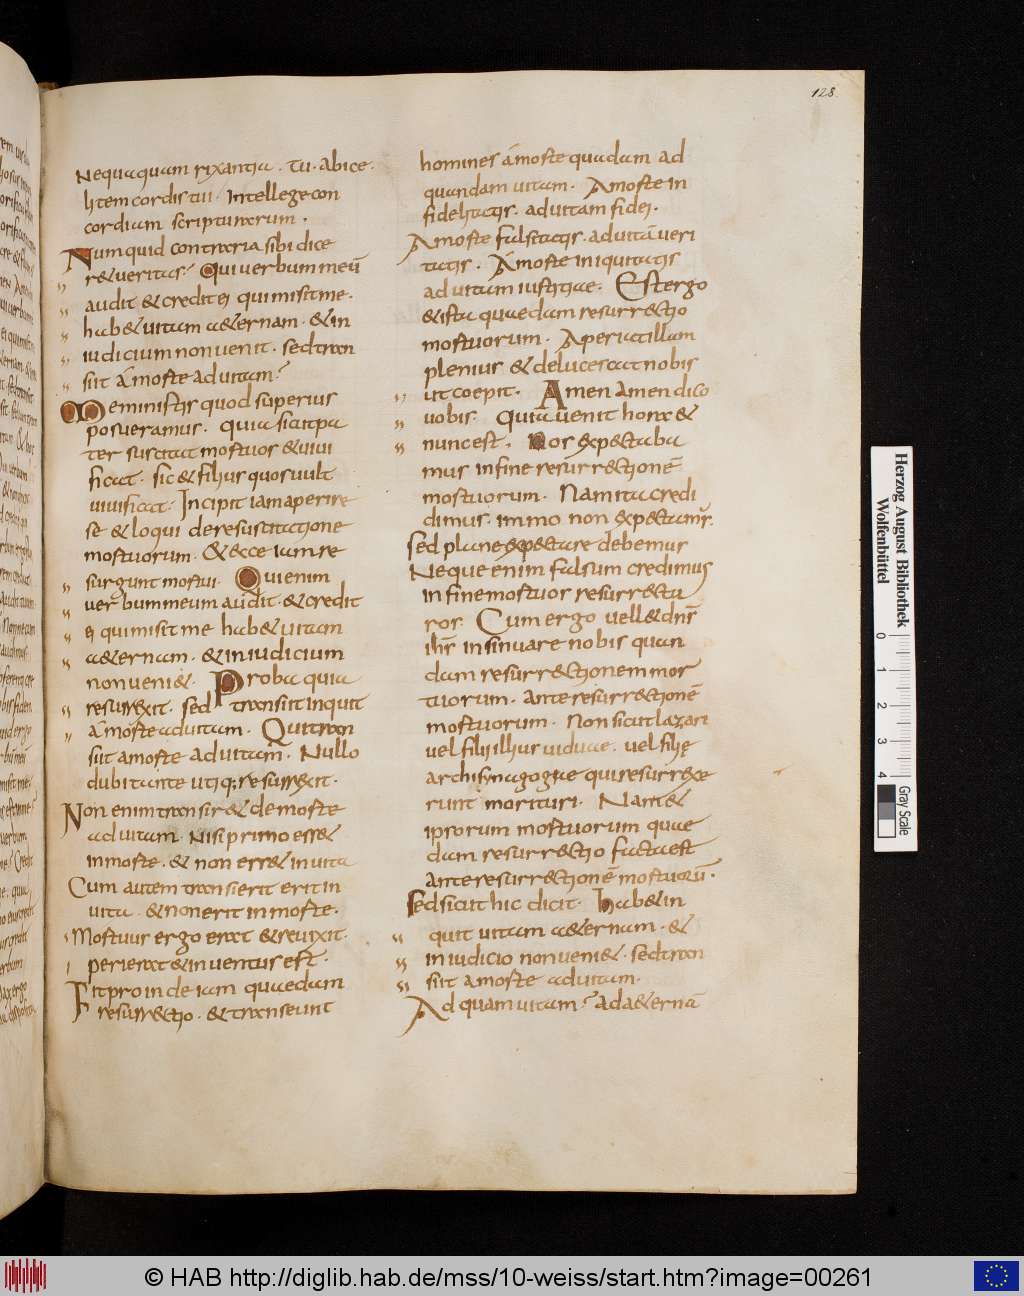 128.
Nequaquam rixantia. tu. abice.
litem cordis tui. Intellege con
cordiam scripturarum.
Numquid contraria sibi dice
r& ueritas? Qui uerbum meū
audit & credit ei qui misit me.
hab& uitam a&ernam. & in
iudicium non uenit. sed tran
siit á morte ad uitam?
Meministis quod superius
posueramus. quia sicut pa
ter suscitat mortuos & uiui
ficat. sic & filius quos uult
uiuificat. Incipit iam aperire
se & loqui de resuscitatione
mortuorum. & ecce iam re
surgunt mortui. Qui enim
uerbum meum audit. & credit
ei qui misit me hab& uitam
a&ernam. & in iudicium
non ueni&. Proba quia
resurrexit. sed transiit inquit
á morte ad uitam. Qui tran
siit a morte ad uitam. Nullo
dubitante utiq; resurrexit.
Non enim transir& de morte
ad uitam. Nisi primo ess&
in morte. & non ess& in uita
Cum autem transierit erit in
uita. & non erit in morte.
Mortuus ergo erat & reuixit.
perierat & inuentus est.
Fit proinde iam quaedam
resurr&tio. & transeunt
homines á morte quadam ad
quandam uitam. A morte in
fidelitatis. ad uitam fidei.
A morte falsitatis. ad uitā ueri
tatis. Á morte iniquitatis
ad uitam iustitiae. Est ergo
& ista quaedam resurr&tio
mortuorum. Aperiat illam
plenius & delucescat nobis
ut coepit. Amen amen dico
uobis. Quia uenit hora &
nunc est. Nos exp&taba
mus in fine resurr&tionē
mortuorum. Nam ita credi
dimus. immo non exp&tamus.
sed plane exp&tare debemus
Neque enim falsum credimus
in fine mortuos resurr&tu
ros. Cum ergo uell& dnſ
ihſ insinuare nobis quan
dam resurr&tionem mor
tuorum. ante resurr&tionē
mortuorum. Non sicut lazari
uel filii illius uiduae. uel filię
archisynagogae qui resurrexe
runt morituri. Nam &
ipsorum mortuorum quae
dam resurr&tio facta est
ante resurr&tionē mortuorū.
Sed sicut hic dicit. Hab& in
quit uitam a&ernam. &
in iudicio non ueni&. sed tran
siit a morte ad uitam.
Ad quam uitam? ad a&ernā
Herzog August Bibliothek
Wolfenbüttel
0 1 2 3 4
Gray Scale
© HAB http://diglib.hab.de/mss/10-weiss/start.htm?image=00261